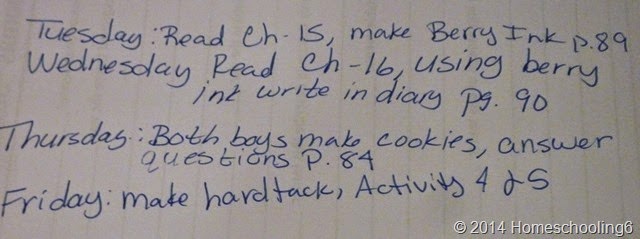 Tuesday: Read Ch-15, make Berry Ink p.89
Wednesday Read Ch-16, using berry
ink write in diary pg. 90
Thursday: Both boys make cookies, answer
questions P. 84
Friday: make hardtack, Activity 4 & 5
© 2014 Homeschooling6